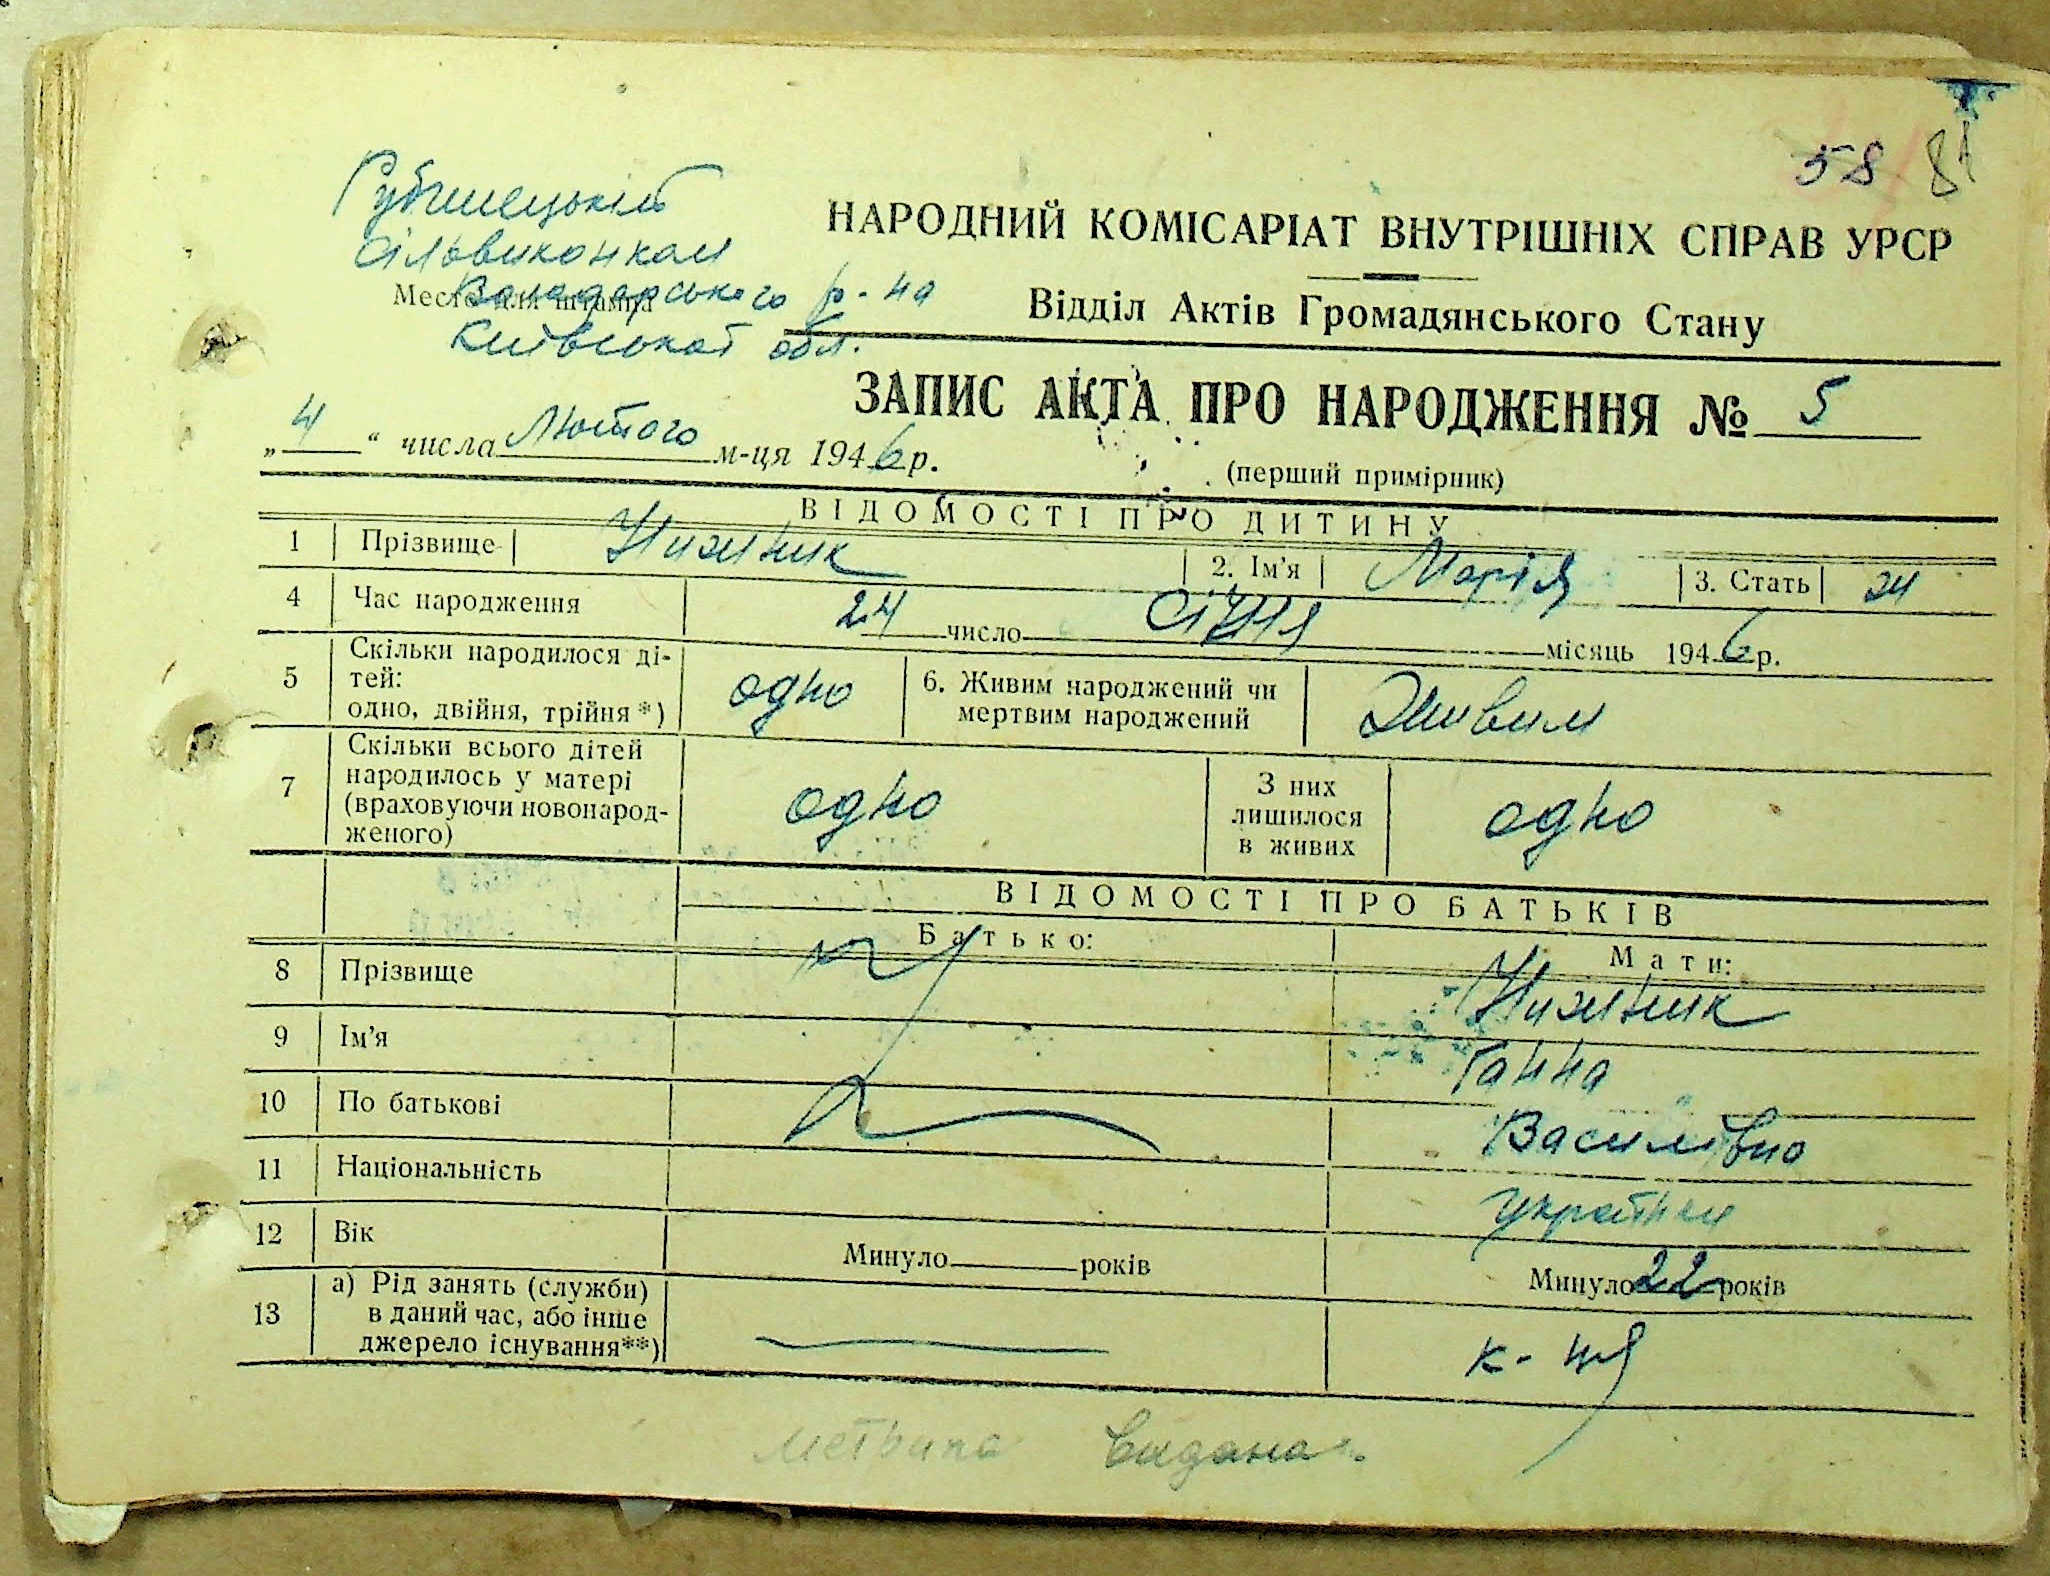 58 81
Рубченецький
сільвиконком
Место для штампа
Володарського р-на
Київської обл.
НАРОДНИЙ КОМІСАРІАТ ВНУТРІШНІХ СПРАВ УРСР
Відділ Актів Громадянського Стану
ЗАПИС АКТА ПРО НАРОДЖЕННЯ № 5
„4“ числа Лютого м-ця 1946 р.
(перший примірник)
ВІДОМОСТІ ПРО ДИТИНУ
1 Прізвище Нижник 2. Ім'я Марія 3. Стать ж
4 Час народження 24 число січня місяць 1946 р.
5 Скільки народилося ді-
тей:
одно, двійня, трійня*) одно 6. Живим народжений чи
мертвим народжений Живим
7 Скільки всього дітей
народилось у матері
(враховуючи новонарод-
женого) одно З них
лишилося
в живих одно
ВІДОМОСТІ ПРО БАТЬКІВ
Батько: Мати:
8 Прізвище Нижник
9 Ім'я Ганна
10 По батькові Василівна
11 Національність українка
12 Вік Минуло років Минуло 22 років
13 а) Рід занять (служби)
в даний час, або інше
джерело існування**) к-ця
Метрика видана